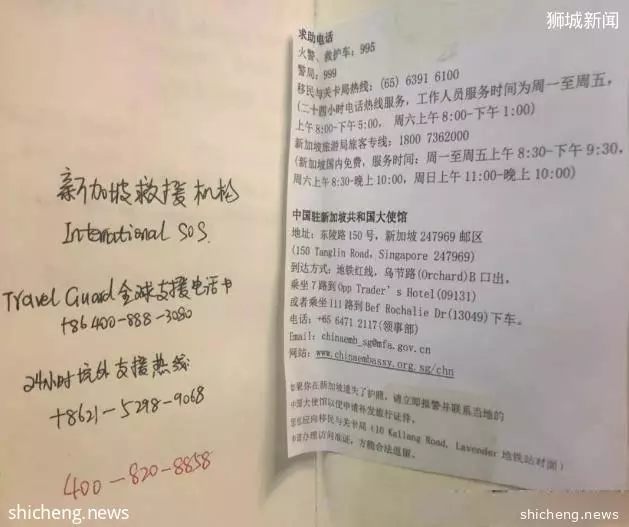 狮城新闻
新加坡救援机构
International SOS.
Travel Guard 全球支援电话卡
+86 400-888-3080
24小时境外支援热线
+8621-5298-9068
400-820-8858
求助电话
火警、救护车：995
警局：999
移民与关卡局热线：(65) 6391 6100
(二十四小时电话热线服务，工作人员服务时间为周一至周五，
上午 8:00-下午 5:00，周六上午 8:00-下午 1:00)
新加坡旅游局旅客专线：1800 7362000
(新加坡国内免费，服务时间：周一至周五上午 8:30-下午 9:30，
周六上午 8:30-晚上 10:00，周日上午 11:00-晚上 10:00)
中国驻新加坡共和国大使馆
地址：东陵路 150 号，新加坡 247969 邮区
(150 Tanglin Road, Singapore 247969)
到达方式：地铁红线，乌节路(Orchard)B 口出，
乘坐 7 路到 Opp Trader's Hotel(09131)
或者乘坐 111 路到 Bef Rochalie Dr(13049)下车。
电话：+65 6471 2117(领事部)
Email: chinaemb_sg@mfa.gov.cn
网站：www.chinaembassy.org.sg/chn
如果你在新加坡遗失了护照，请立即报警并联系当地的
中国大使馆以便申请补发旅行证件。
您应向移民与关卡局 (10 Kallang Road, Lavender 地铁站对面)
申请办理访问准证，方能合法逗留。
shicheng.news
shicheng.news